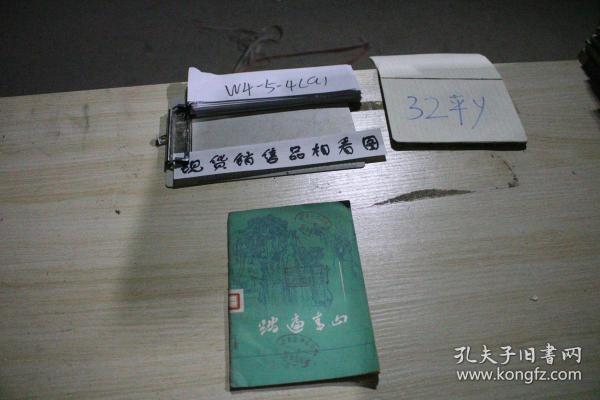 W4-5-4(a)
32平y
现货销售品相看图
踏遍青山
孔夫子旧书网
www.kongfz.com